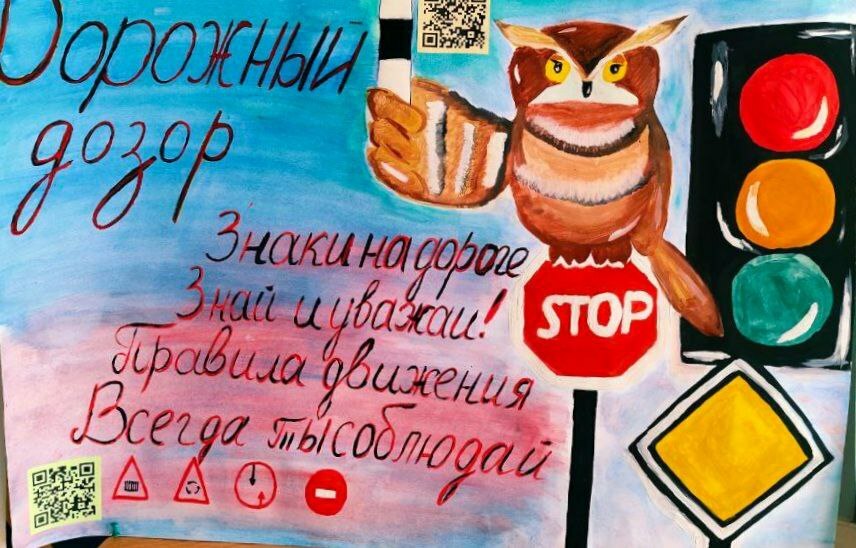 Дорожный
дозор
Знаки на дороге
Знай и уважай!
Правила движения
Всегда ты соблюдай
STOP